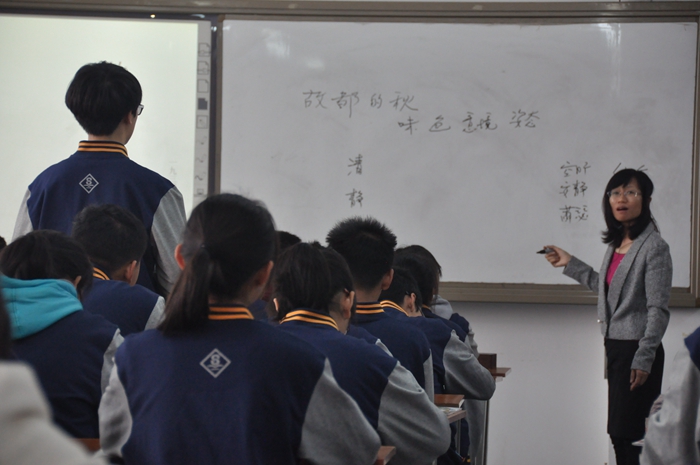 故都的秋
味 色 意境 姿态
清
静
安静
萧瑟